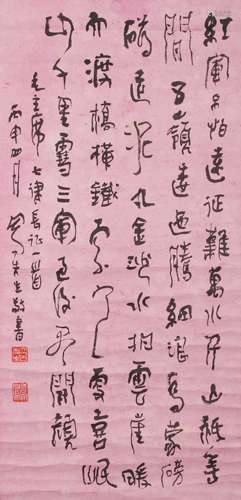 紅軍不怕遠征難萬水千山祗等
閒五嶺逶迤騰細浪烏蒙磅
礴走泥丸金沙水拍雲崖暖
大渡橋橫鐵索寒更喜岷
山千里雪三軍過後盡開顏
毛主席七律長征一首
丙申四月 敬書